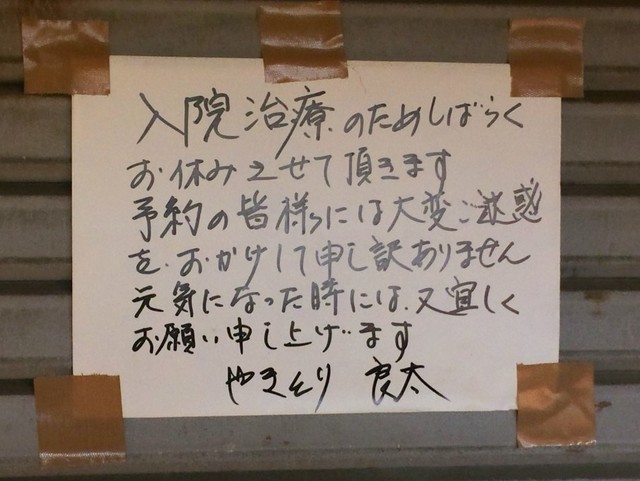 入院治療のためしばらく
お休みさせて頂きます
予約の皆様には大変ご迷惑
を、おかけして申し訳ありません
元気になった時には、又宜しく
お願い申し上げます
やきとり 良太